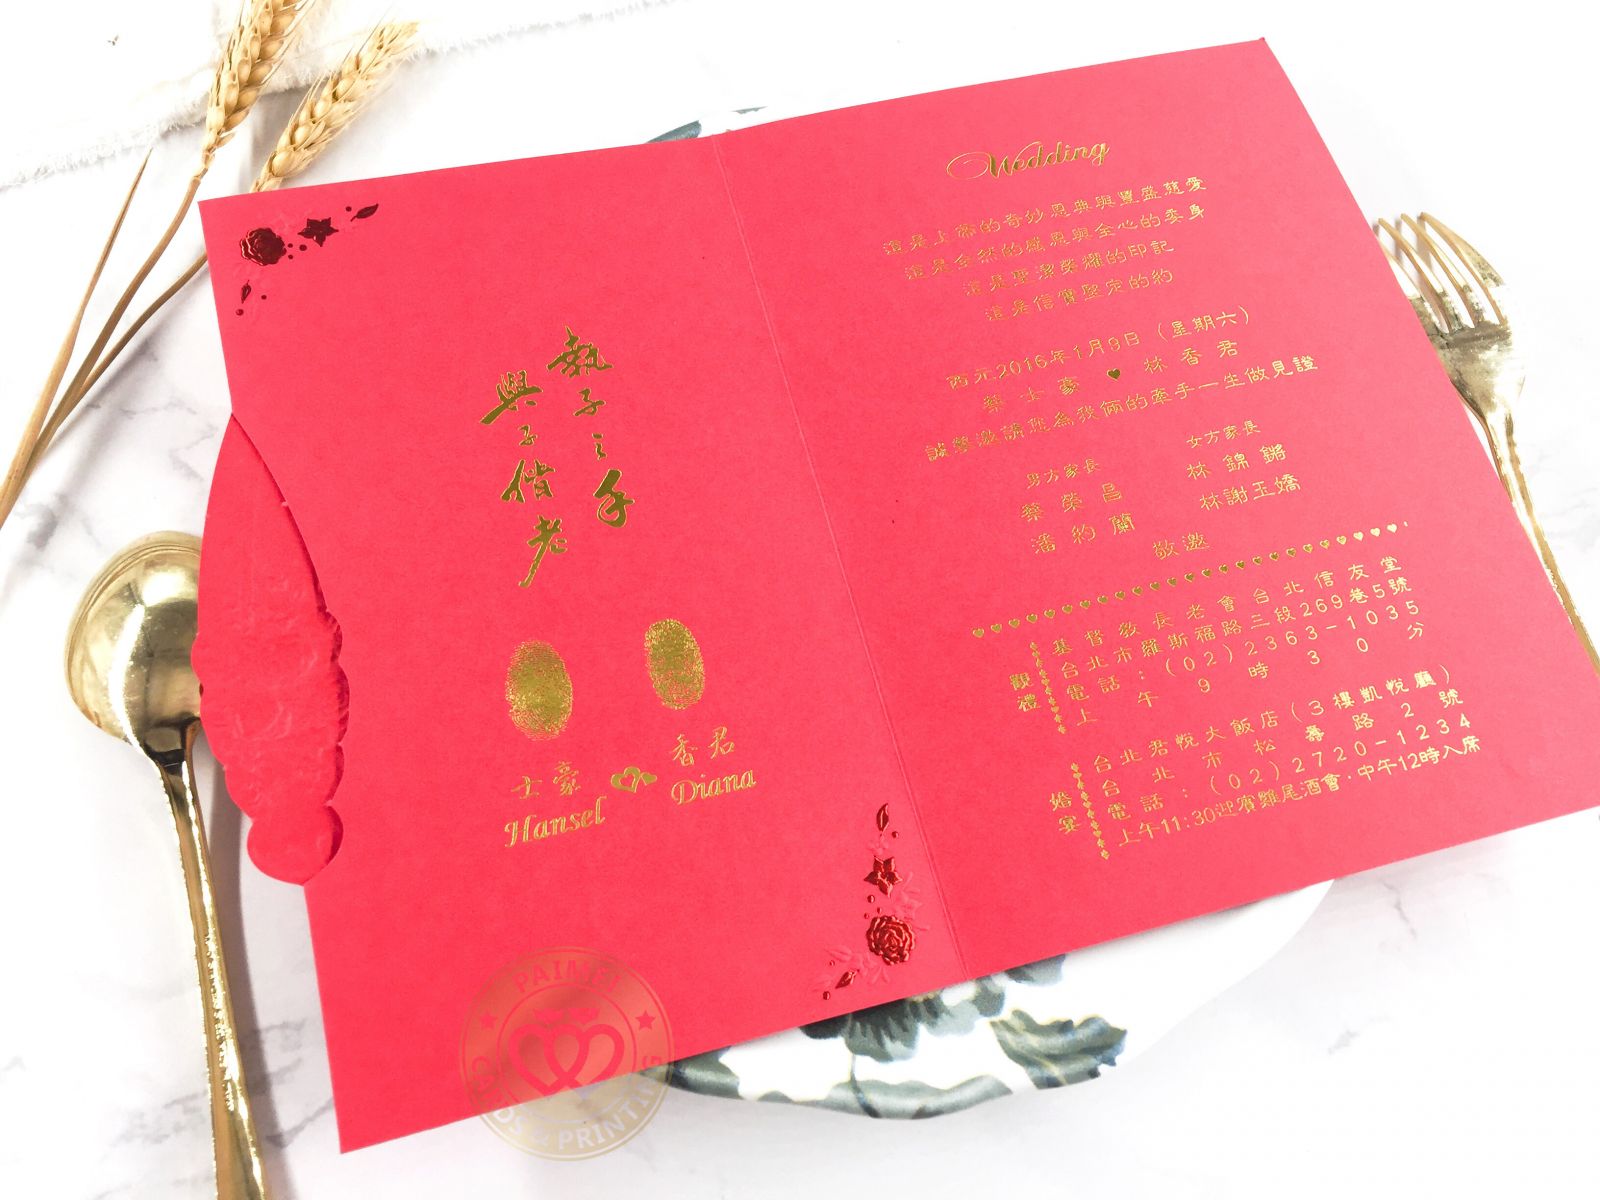 執子之手
與子偕老
士豪 香君
Hansel Diana
Wedding
這是上帝的奇妙恩典與豐盛慈愛
這是全然的感恩與全心的委身
這是聖潔榮耀的印記
這是信實堅定的約
西元2016年1月9日（星期六）
蔡士豪 林香君
誠摯邀請您為我倆的牽手一生做見證
男方家長 女方家長
蔡榮昌 林錦鏘
潘約蘭 林謝玉嬌
敬邀
觀禮
基督教長老會台北信友堂
台北市羅斯福路三段269巷5號
電話：(02)2363-1035
上午9時30分
婚宴
台北君悅大飯店(3樓凱悅廳)
台北市松壽路2號
電話：(02)2720-1234
上午11:30迎賓雞尾酒會，中午12時入席
PAIMEI
CARDS & PRINTINGS